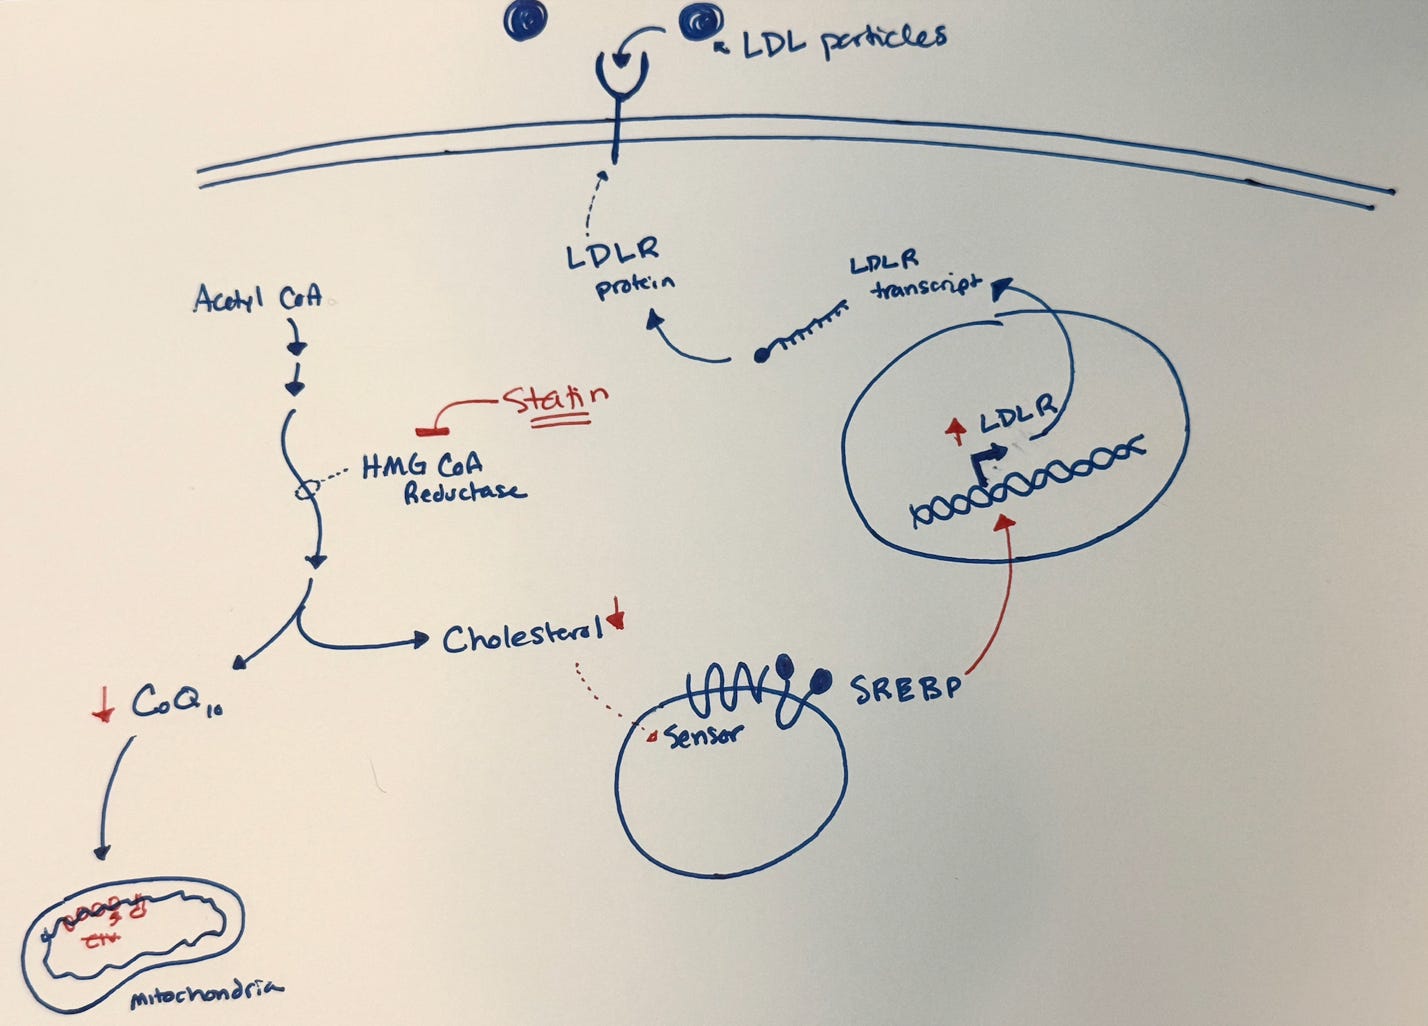 LDL particles
LDLR
protein
LDLR
transcript
Acetyl CoA
Statin
HMG CoA
Reductase
LDLR
Cholesterol
CoQ10
SREBP
Sensor
Mitochondria